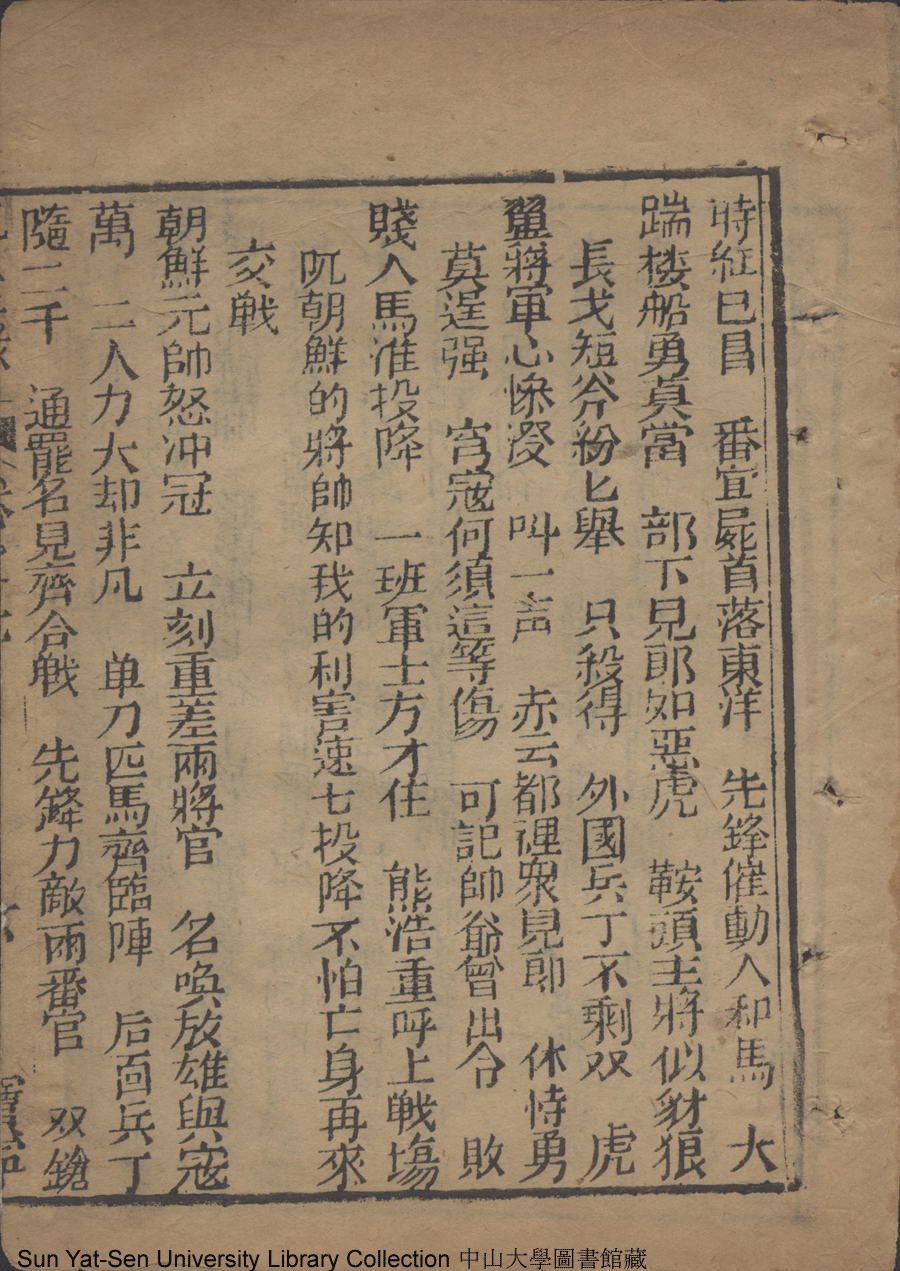 時紅巳昌 番宜屍首落東洋 先鋒催動人和馬 大
踹楼船勇真當 部下見郎如惡虎 鞍頭主將似豺狼
長戈短斧紛匕舉 只殺得 外國兵丁不剩双 虎
翼將軍心惨凄 叫一声 赤云都裡衆見郎 休恃勇
莫逞强 穷寇何須這等傷 可記帥爺曾出令 敗
賤人馬准投降 一班軍士方才住 熊浩重呼上戦塲
吭朝鮮的將帥知我的利害速七投降不怕亡身再來
交戦
朝鮮元帥怒冲冠 立刻重差兩將官 名喚放雄與寇
萬 二人力大却非凡 单刀匹馬齊臨陣 后面兵丁
隨二千 通罷名見齊合戦 先鋒力敵兩番官 双鎗
Sun Yat-Sen University Library Collection 中山大學圖書館藏